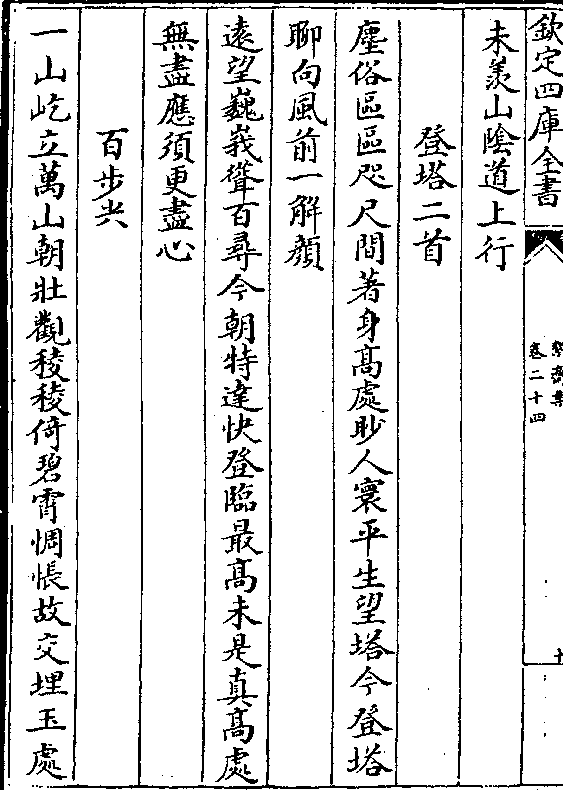 欽定四庫全書
卷二十四
未羨山陰道上行
登塔二首
塵俗區區咫尺間著身髙處眇人寰平生望塔今登塔
聊向風前一解顔
遠望巍峩聳百尋今朝特達快登臨最髙未是真髙處
無盡應須更盡心
百步尖
一山屹立萬山朝壯觀稜稜倚碧霄惆悵故交埋玉處